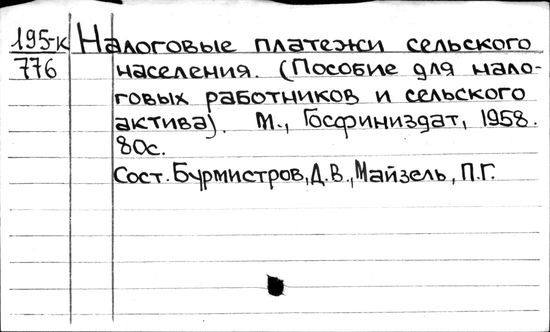 195-к Налоговые платежи сельского
776 населения. (Пособие для нало-
говых работников и сельского
актива). М., Госфиниздат, 1958.
80с.
Сост. Бурмистров, Д.В., Майзель, П.Г.